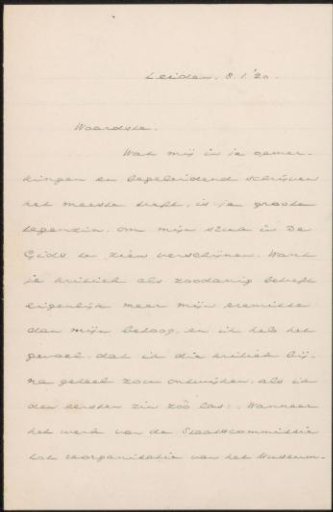 Leiden, 8.1.'20.
Waardste.
Wat mij in je opmer-
kingen en begeleidend schrijven
het meeste treft, is je groote
tegenzin, om mijn stuk in De
Gids te zien verschijnen. Want
je kritiek als zoodanig betreft
eigenlijk meer mijn premisse
dan mijn betoog, en ik heb het
gevoel, dat ik die kritiek bij-
na geheel zou ontwijken, als ik
den eersten zin zóó las: Wanneer
het werk van de Staatscommissie
tot reorganisatie van het Museum-